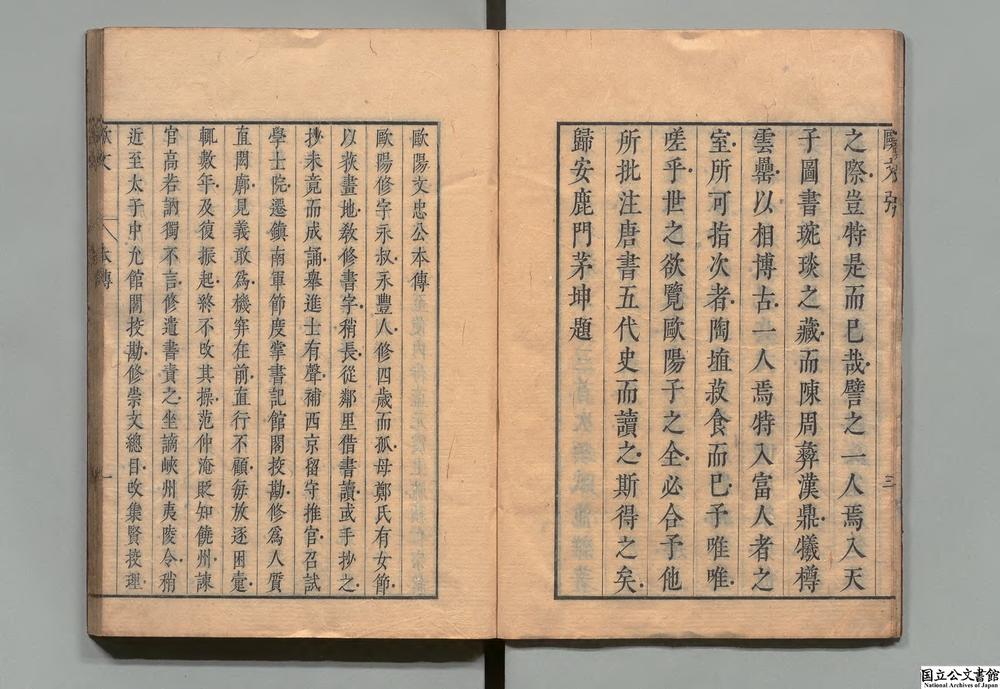 之際豈特是而已哉譬之一人焉入天
子圖書琬琰之藏而陳周彝漢鼎犧樽
雲罍以相博古一人焉特入富人者之
室所可指次者陶埴菽食而已予唯唯
嗟乎世之欲覽歐陽子之全必合予他
所批注唐書五代史而讀之斯得之矣
歸安鹿門茅坤題
三
歐陽文忠公本傳
歐陽修字永叔永豐人修四歲而孤母鄭氏有女節
以荻畫地教修書字稍長從鄰里借書讀或手抄之
抄未竟而成誦舉進士有聲補西京留守推官召試
學士院遷鎮南軍節度掌書記館閣挍勘修爲人質
直閎廓見義敢爲機穽在前直行不顧每放逐困躓
輒數年及復振起終不改其操范仲淹貶知饒州諫
官高若訥獨不言修遺書責之坐謫峽州夷陵令稍
近至太子中允館閣挍勘修崇文總目改集賢挍理
歐文
本傳
一
国立公文書館
National Archives of Japan